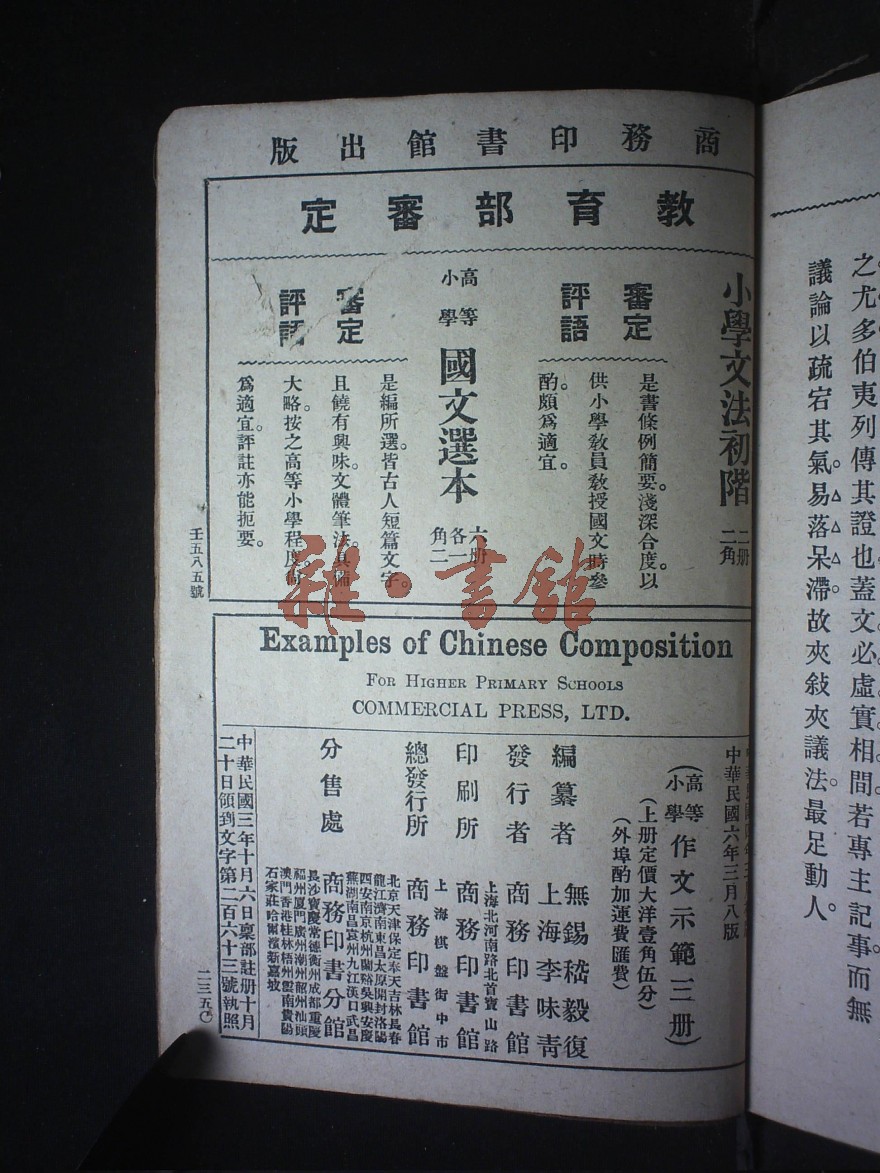 商務印書館出版
教育部審定
小學文法初階
二册
二角
審定
評語
是書條例簡要。淺深合度。以
供小學教員教授國文時參
酌。頗爲適宜。
高等
小學
國文選本
六册
各一
角二
審定
評語
是編所選。皆古人短篇文字。
且饒有興味。文體筆法。具備
大略。按之高等小學程度。尙
爲適宜。評註亦能扼要。
壬五八五號
雜·書館
Examples of Chinese Composition
FOR HIGHER PRIMARY SCHOOLS
COMMERCIAL PRESS, LTD.
中華民國六年三月八版
(高等小學作文示範三册)
(上册定價大洋壹角伍分)
(外埠酌加運費匯費)
編纂者 無錫嵇毅復
上海李味靑
發行者 商務印書館
上海北河南路北首寶山路
印刷所 商務印書館
上海棋盤街中市
總發行所 商務印書館
北京天津保定奉天吉林長春
龍江濟南東昌太原開封洛陽
西安南京杭州蘭谿吳興安慶
蕪湖南昌袁州九江漢口武昌
分售處 商務印書分館
長沙寶慶常德衡州成都重慶
福州厦門廣州潮州韶州汕頭
澳門香港桂林梧州雲南貴陽
石家莊哈爾濱新嘉坡
中華民國三年十月六日稟部註册十月
二十日領到文字第二百六十三號執照
二三五〇
之尤多伯夷列傳其證也蓋文必虛實相間。若專主記事。而無
議論以疏宕其氣。易落呆滯。故夾敍夾議法。最足動人。